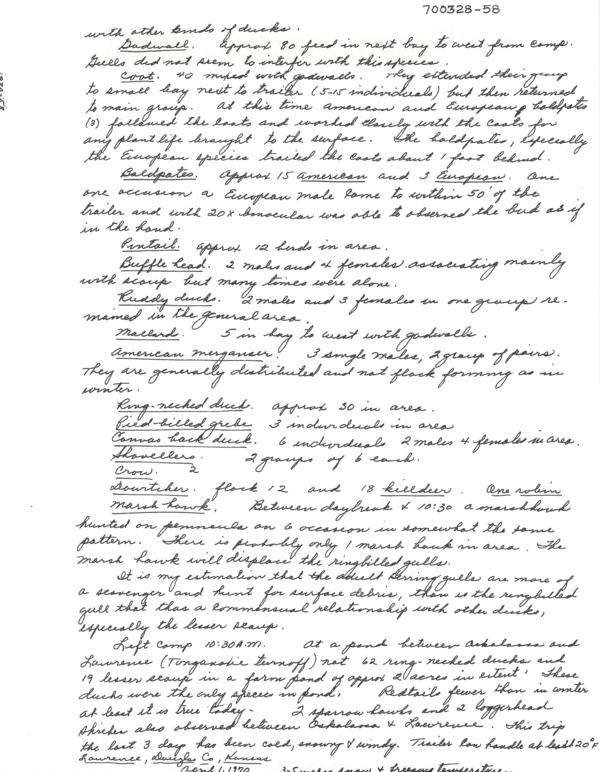 700328-58
with other kinds of ducks.
Gadwall. Approx 80 feed in next bay to west from camp.
Gulls did not seem to interfer with this species.
Coot. 40 mixed with gadwalls. They attended their group
to small bay next to trailer (5-15 individuals) but then returned
to main group. At this time American and European baldpates
(3) followed the coots and worked closely with the coots for
any plant life brought to the surface. The baldpates, especially
the European species trailed the coots about 1 foot behind.
Baldpates. Approx 15 American and 3 European. One
one occasion a European male came to within 50' of the
trailer and with 20x binocular was able to observed the bird as if
in the hand.
Pintail. Approx 12 birds in area.
Buffle head. 2 males and 4 females associating mainly
with scaup but many times were alone.
Ruddy duck. 2 males and 3 females in one group re-
mained in the general area.
Mallard. 5 in bay to west with gadwalls.
American merganser. 3 single males, 2 group of pairs.
They are generally distributed and not flock forming as in
winter.
Ring-necked duck. approx 30 in area.
Pied-billed grebe 3 individuals in area
Canvas back duck. 6 individuals 2 males 4 females in area.
Shovellers. 2 groups of 6 each.
Crow. 2
Dowitcher. flock 12 and 18 killdeer. One robin
Marsh hawk. Between daybreak & 10:30 a marsh hawk
hunted on peninsula on 6 occasion in somewhat the same
pattern. There is probably only 1 marsh hawk in area. The
marsh hawk will displace the ringbilled gulls.
It is my estimation that the adult Herring gulls are more of
a scavenger and hunt for surface debris, than is the ringbilled
gull that has a commensual relationship with other ducks,
especially the lesser scaup.
Left camp 10:30 A.M. At a pond between Oskaloosa and
Lawrence (Tonganoxie turnoff) not 62 ring-necked ducks and
19 lesser scaup in a farm pond of approx 2 acres in extent. These
ducks were the only species in pond. Redtails fewer than in winter
at least it is true today. 2 sparrow hawks and 2 loggerhead
shrikes also observed between Oskaloosa & Lawrence. This trip
the last 3 days has been cold, snowy & windy. Trailer can handle at least 20°F
Lawrence, Douglas Co, Kansas
April 1, 1970 snow & freezing temperature